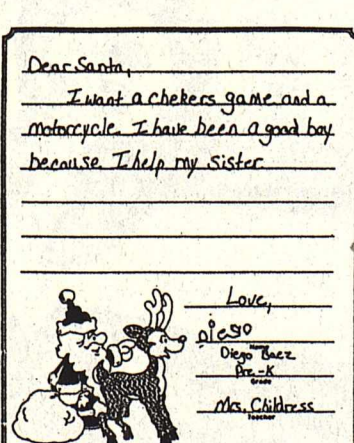 Dear Santa,
I want a chekers game and a
motorcycle. I have been a good boy
because I help my sister
Love,
Diego
Name
Diego Baez
Pre-K
Grade
Mrs. Childress
Teacher